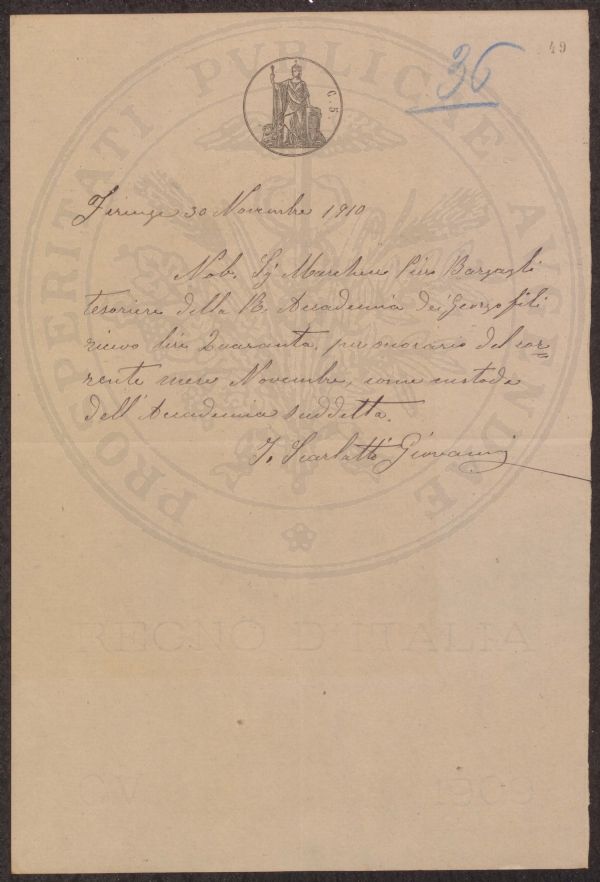 49
36
C. 5.
PROSPERITATI PVBLICAE AVGENDAE
Firenze 30 Novembre 1910
Nob. Sig Marchese Piero Bargagli
tesoriere della R. Accademia dei Georgofili
ricevo lire Quaranta, per onorario del cor=
rente mese Novembre, come custode
dell'Accademia suddetta.
Io Scarlatti Giovanni
REGNO D'ITALIA
1909